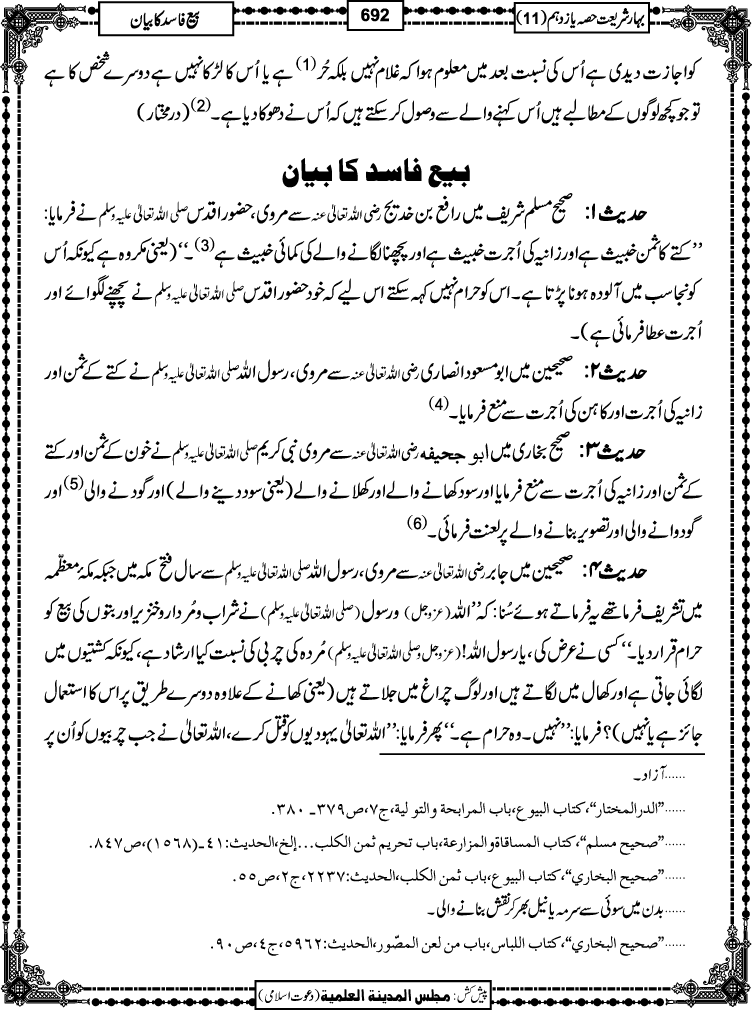 بہار شریعت حصہ یازدہم (11)
692
بیع فاسد کا بیان
کو اجازت دیدی ہے اُس کی نسبت بعد میں معلوم ہوا کہ غلام نہیں بلکہ حُر (1) ہے یا اُس کا لڑکا نہیں ہے دوسرے شخص کا ہے
تو جو کچھ لوگوں کے مطالبے ہیں اُس کہنے والے سے وصول کر سکتے ہیں کہ اُس نے دھوکا دیا ہے۔ (2) (درمختار)
بیع فاسد کا بیان
حدیث ۱: صحیح مسلم شریف میں رافع بن خدیج رضی اللہ تعالیٰ عنہ سے مروی، حضور اقدس صلی اللہ تعالیٰ علیہ وسلم نے فرمایا:
’’کتے کا ثمن خبیث ہے اور زانیہ کی اُجرت خبیث ہے اور پچھنا لگانے والے کی کمائی خبیث ہے (3)۔‘‘ (یعنی مکروہ ہے کیونکہ اُس
کو نجاست میں آلودہ ہونا پڑتا ہے۔ اس کو حرام نہیں کہہ سکتے اس لیے کہ خود حضور اقدس صلی اللہ تعالیٰ علیہ وسلم نے پچھنے لگوائے اور
اُجرت عطا فرمائی ہے)۔
حدیث ۲: صحیحین میں ابو مسعود انصاری رضی اللہ تعالیٰ عنہ سے مروی، رسول اللہ صلی اللہ تعالیٰ علیہ وسلم نے کتے کے ثمن اور
زانیہ کی اُجرت اور کاہن کی اُجرت سے منع فرمایا۔ (4)
حدیث ۳: صحیح بخاری میں ابو جحیفہ رضی اللہ تعالیٰ عنہ سے مروی نبی کریم صلی اللہ تعالیٰ علیہ وسلم نے خون کے ثمن اور کتے
کے ثمن اور زانیہ کی اُجرت سے منع فرمایا اور سود کھانے والے اور کھلانے والے (یعنی سود دینے والے) اور گودنے والی (5) اور
گودوانے والی اور تصویر بنانے والے پر لعنت فرمائی۔ (6)
حدیث ۴: صحیحین میں جابر رضی اللہ تعالیٰ عنہ سے مروی، رسول اللہ صلی اللہ تعالیٰ علیہ وسلم سے سال فتح مکہ میں جبکہ مکۂ معظّمہ
میں تشریف فرما تھے یہ فرماتے ہوئے سُنا: کہ ’’اللہ (عزوجل) و رسول (صلی اللہ تعالیٰ علیہ وسلم) نے شراب و مُردار و خنزیر اور بتوں کی بیع کو
حرام قرار دیا۔‘‘ کسی نے عرض کی، یارسول اللہ! (عزوجل وصلی اللہ تعالیٰ علیہ وسلم) مُردہ کی چربی کی نسبت کیا ارشاد ہے، کیونکہ کشتیوں میں
لگائی جاتی ہے اور کھال میں لگاتے ہیں اور لوگ چراغ میں جلاتے ہیں (یعنی کھانے کے علاوہ دوسرے طریق پر اس کا استعمال
جائز ہے یا نہیں)؟ فرمایا: ’’نہیں۔ وہ حرام ہے۔‘‘ پھر فرمایا: ’’اللہ تعالیٰ یہودیوں کو قتل کرے، اللہ تعالیٰ نے جب چربیوں کو اُن پر
......آزاد۔
......”الدرالمختار“، کتاب البیوع، باب المرابحة والتولیة، ج۷، ص۳۷۹۔۳۸۰.
......”صحیح مسلم“، کتاب المساقاة والمزارعة، باب تحریم ثمن الکلب...إلخ، الحدیث: ۴۱۔(۱۵۶۸)، ص۸۴۷.
......”صحیح البخاري“، کتاب البیوع، باب ثمن الکلب، الحدیث: ۲۲۳۷، ج۲، ص۵۵.
......بدن میں سوئی سے سرمہ یا نیل بھر کر نقش بنانے والی۔
......”صحیح البخاري“، کتاب اللباس، باب من لعن المصّور، الحدیث: ۵۹۶۲، ج۴، ص۹۰.
پیش کش: مجلس المدینة العلمیة (دعوت اسلامی)